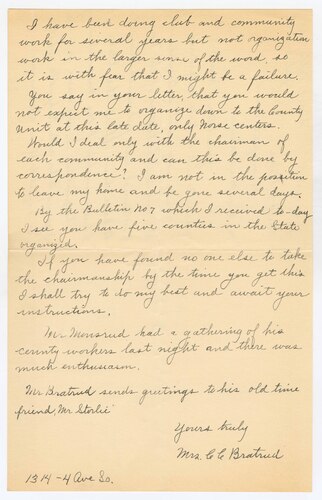 I have been doing club and community
work for several years but not organization
work in the larger sense of the word, so
it is with fear that I might be a failure.
You say in your letter, that you would
not expect me to organize down to the County
Unit at this late date, only Norse centers.
Would I deal only with the chairman of
each community and can this be done by
correspondence? I am not in the position
to leave my home and be gone several days.
By the Bulletin No 7 which I received to-day
I see you have five counties in the State
organized.
If you have found no one else to take
the chairmanship by the time you get this
I shall try to do my best and await your
instructions.
Mr Monsrud had a gathering of his
county workers last night and there was
much enthuseasm.
Mr Bratrud sends greetings to his old time
friend, Mr Storlie
Yours truly
Mrs. C C Bratrud
1314-4 Ave So.